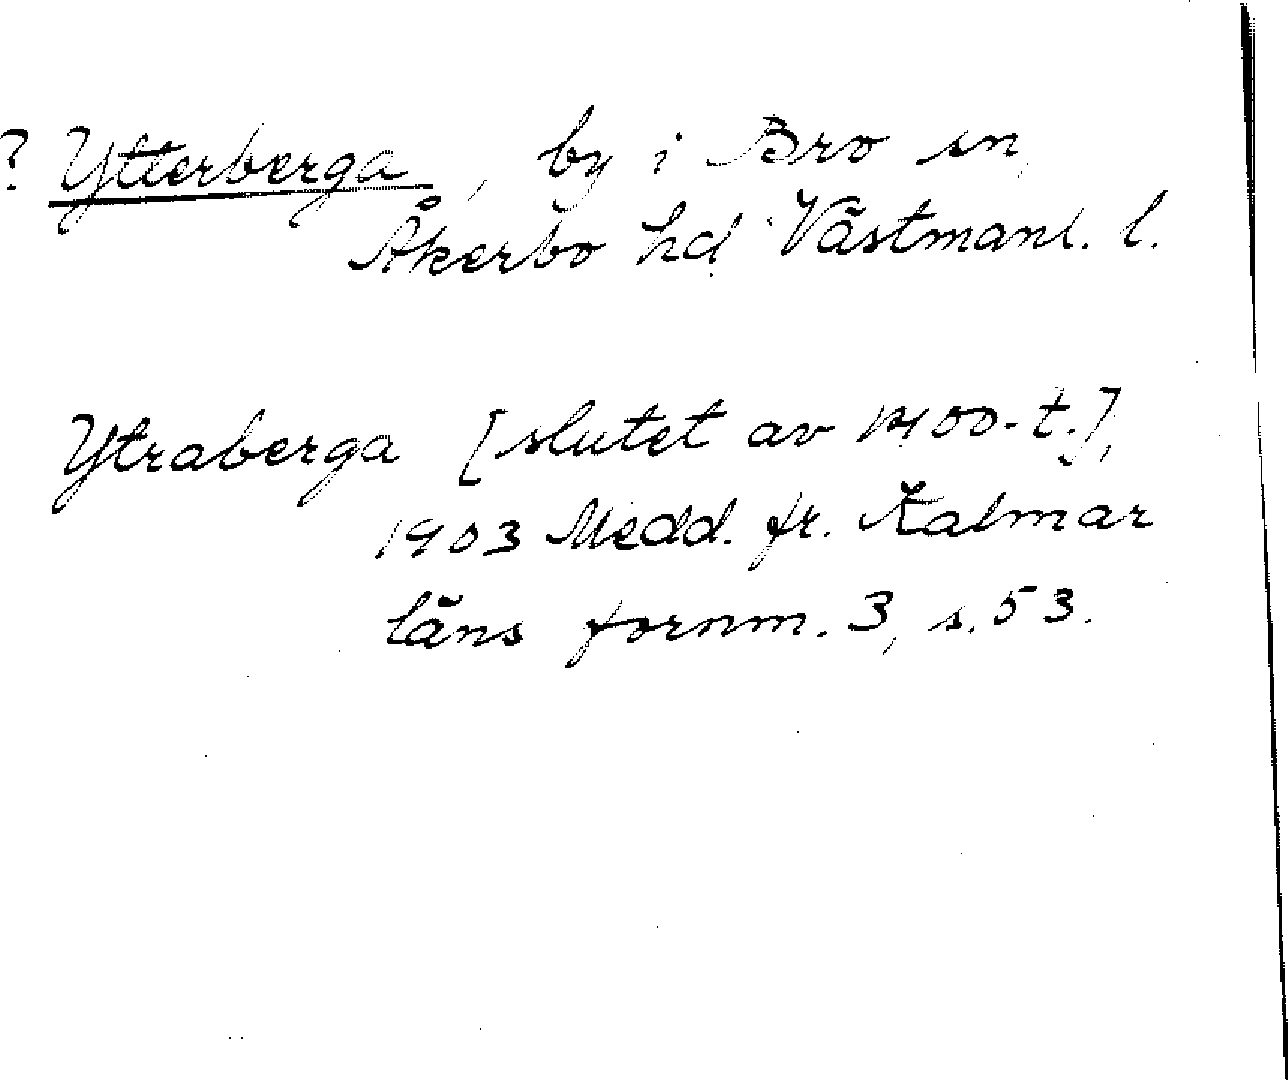 ? Ytterberga, by i Bro sn,
Åkerbo hd Västmanl. l.
Ytraberga [slutet av 1400-t.],
1903 Medd. fr. Kalmar
läns fornm. 3, s. 53.